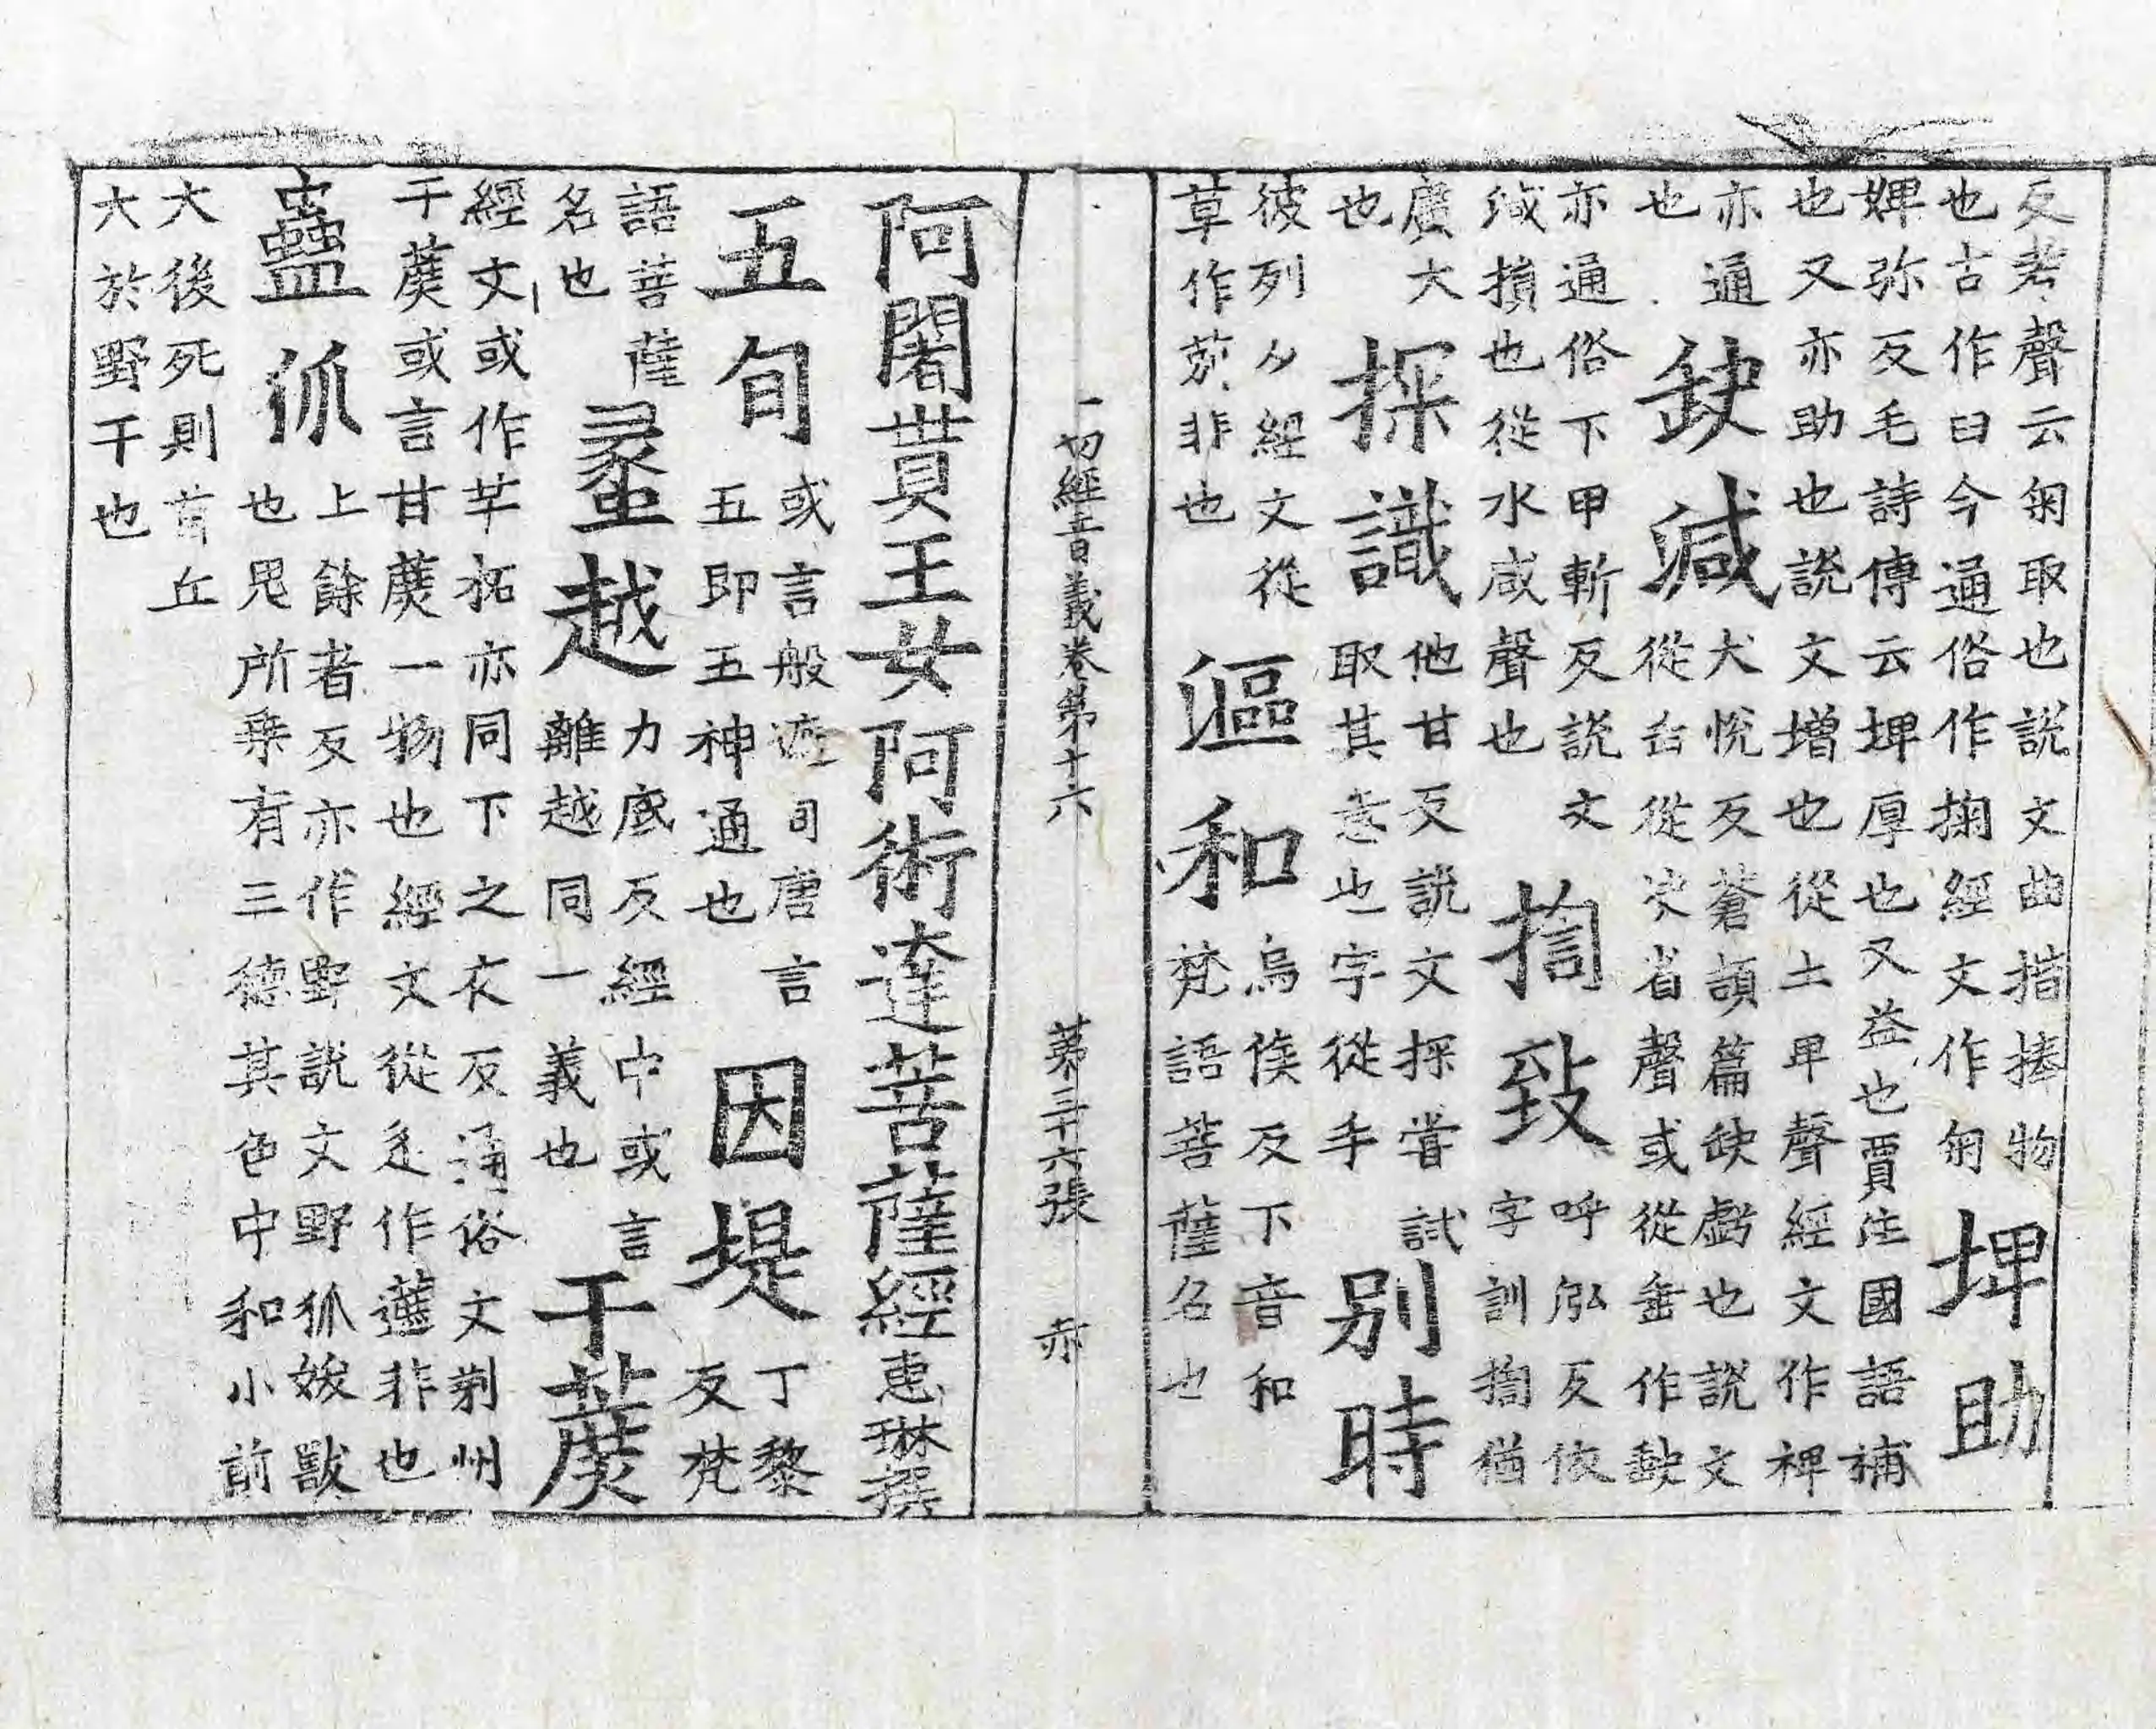 反考聲云匊取也説文曲指捧物
也古作臼今通俗作掬經文作匊
埤助
婢弥反毛詩傳云埤厚也又益也賈注國語補
也又亦助也説文增也從土卑聲經文作裨
亦通
也
缺減
犬悅反蒼頡篇缺虧也説文
從缶從决省聲或從垂作䥇
亦通俗下甲斬反説文
減損也從水咸聲也
揈致
呼泓反依
字訓揈猶
廣大
也
探識
他甘反説文探嘗試
取其意也字從手
別時
彼列反經文從
草作莂非也
漚和
烏侯反下音和
梵語菩薩名也
一切經音義卷第十六 第三十六張 赤
阿闍貰王女阿術達菩薩經 惠琳撰
五旬
或言般遮旬唐言
五即五神通也
因堤
丁黎
反梵
語菩薩
名也
蠡越
力底反經中或言
離越同一義也
干蔗
經文或作芉柘亦同下之衣反通俗文荊州
干蔗或言甘蔗一物也經文從辵作非也
蠱狐
上餘者反亦作野説文野狐媄獸
也鬼所乘有三德其色中和小前
大後死則首丘
大於野干也